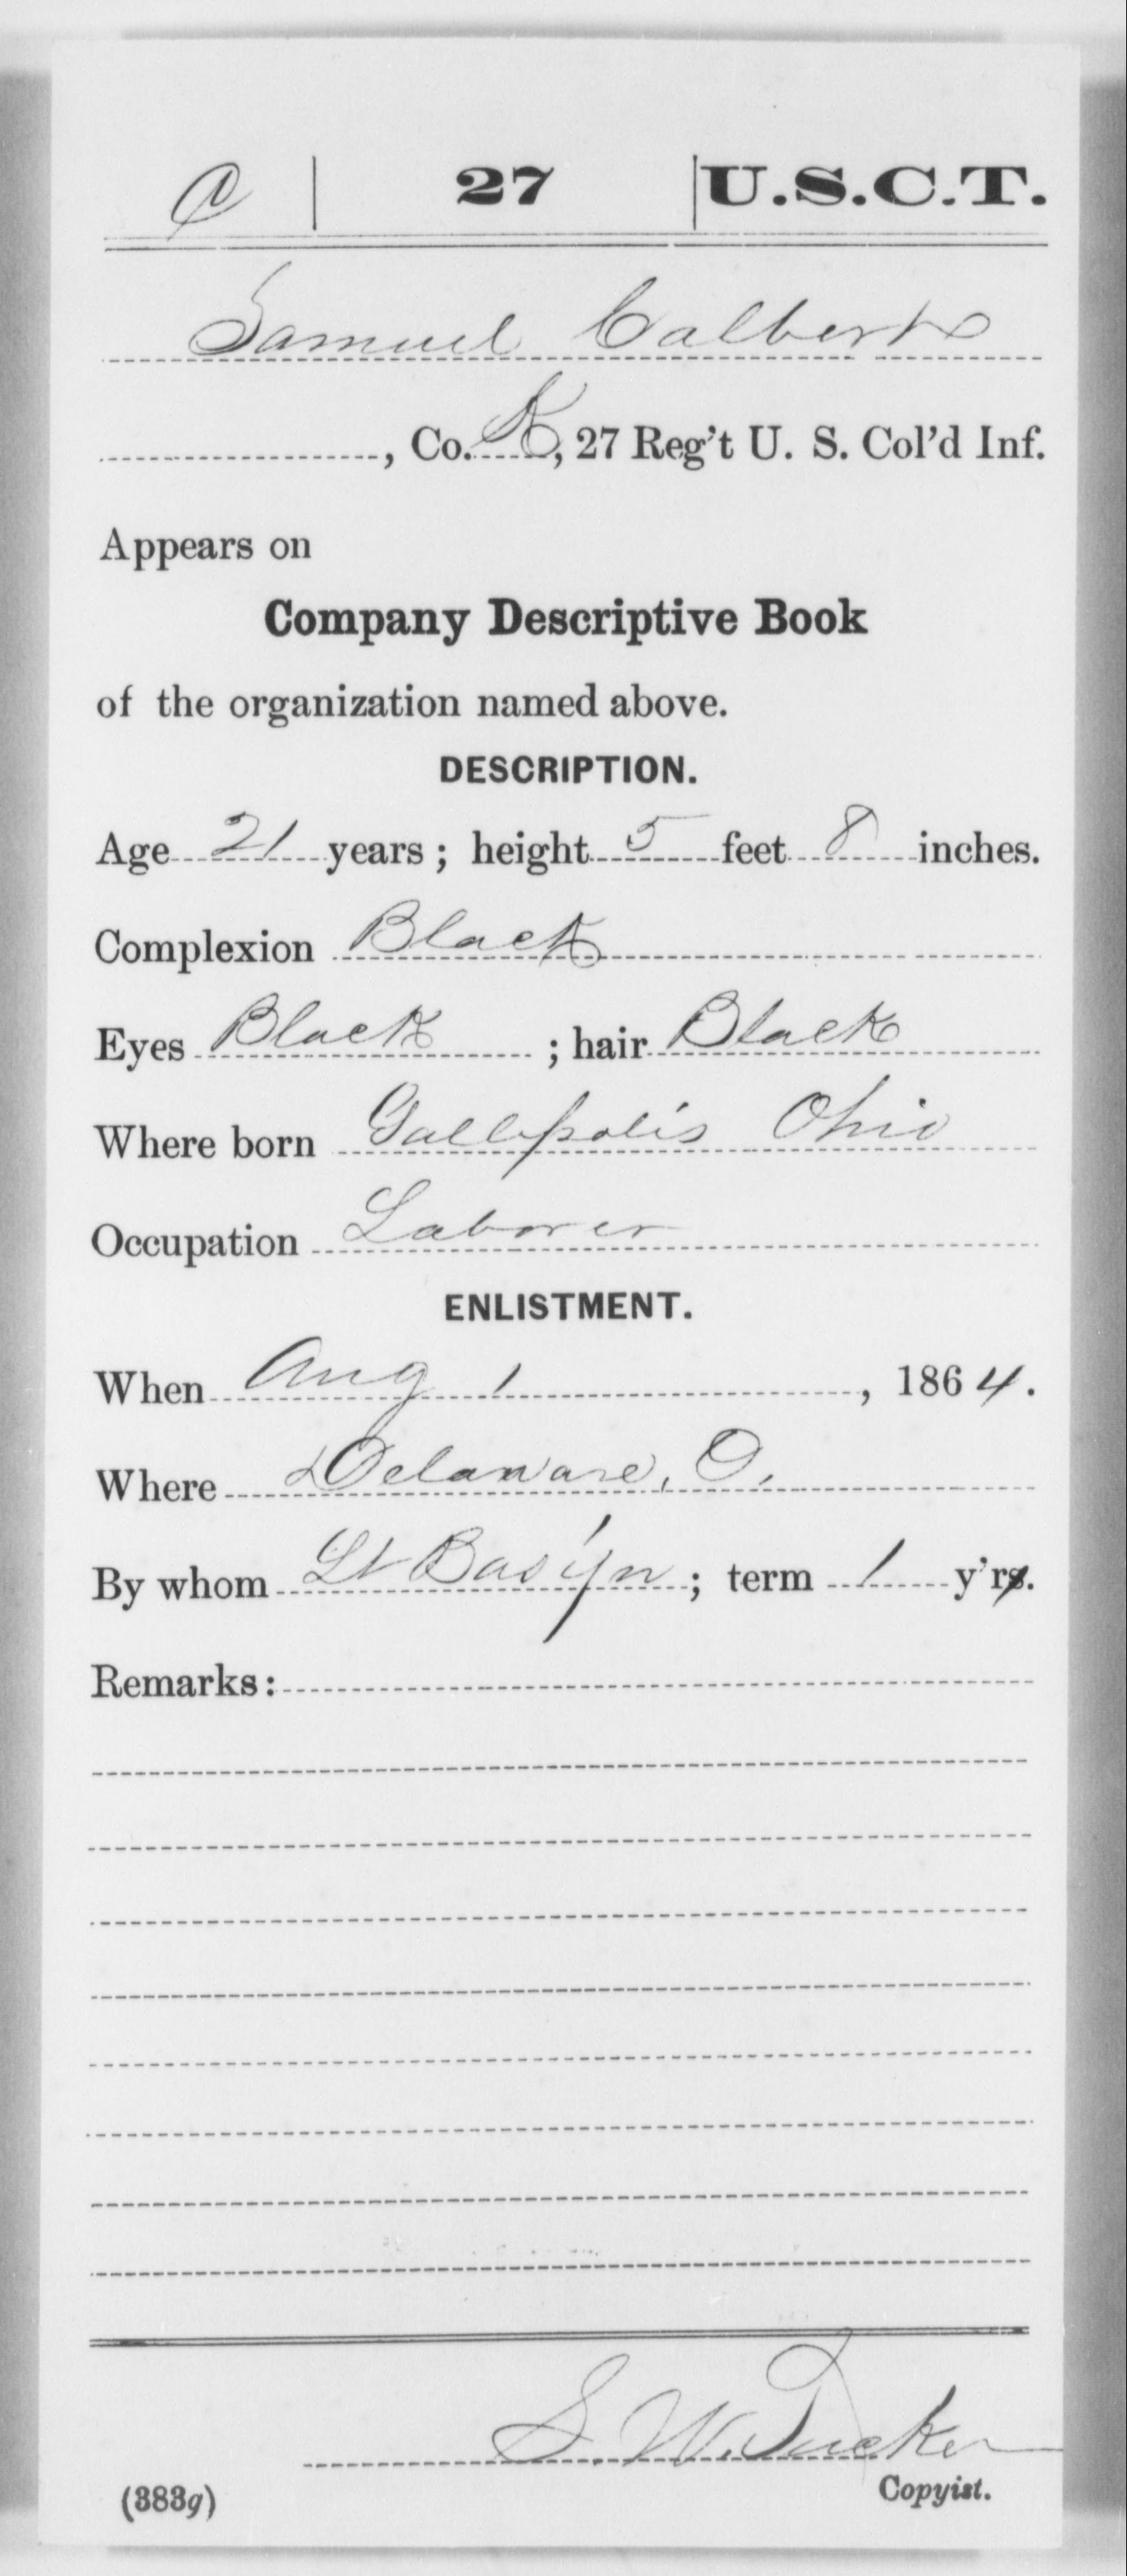 C | 27 | U.S.C.T.
Samuel Calbert
, Co. K, 27 Reg't U. S. Col'd Inf.
Appears on
Company Descriptive Book
of the organization named above.
DESCRIPTION.
Age 21 years; height 5 feet 8 inches.
Complexion Black
Eyes Black ; hair Black
Where born Gallipolis Ohio
Occupation Laborer
ENLISTMENT.
When Aug 1, 1864.
Where Delaware, O.
By whom Lt ; term 1 y'r.
Remarks:
S. W. Tucker
Copyist.
(383g)